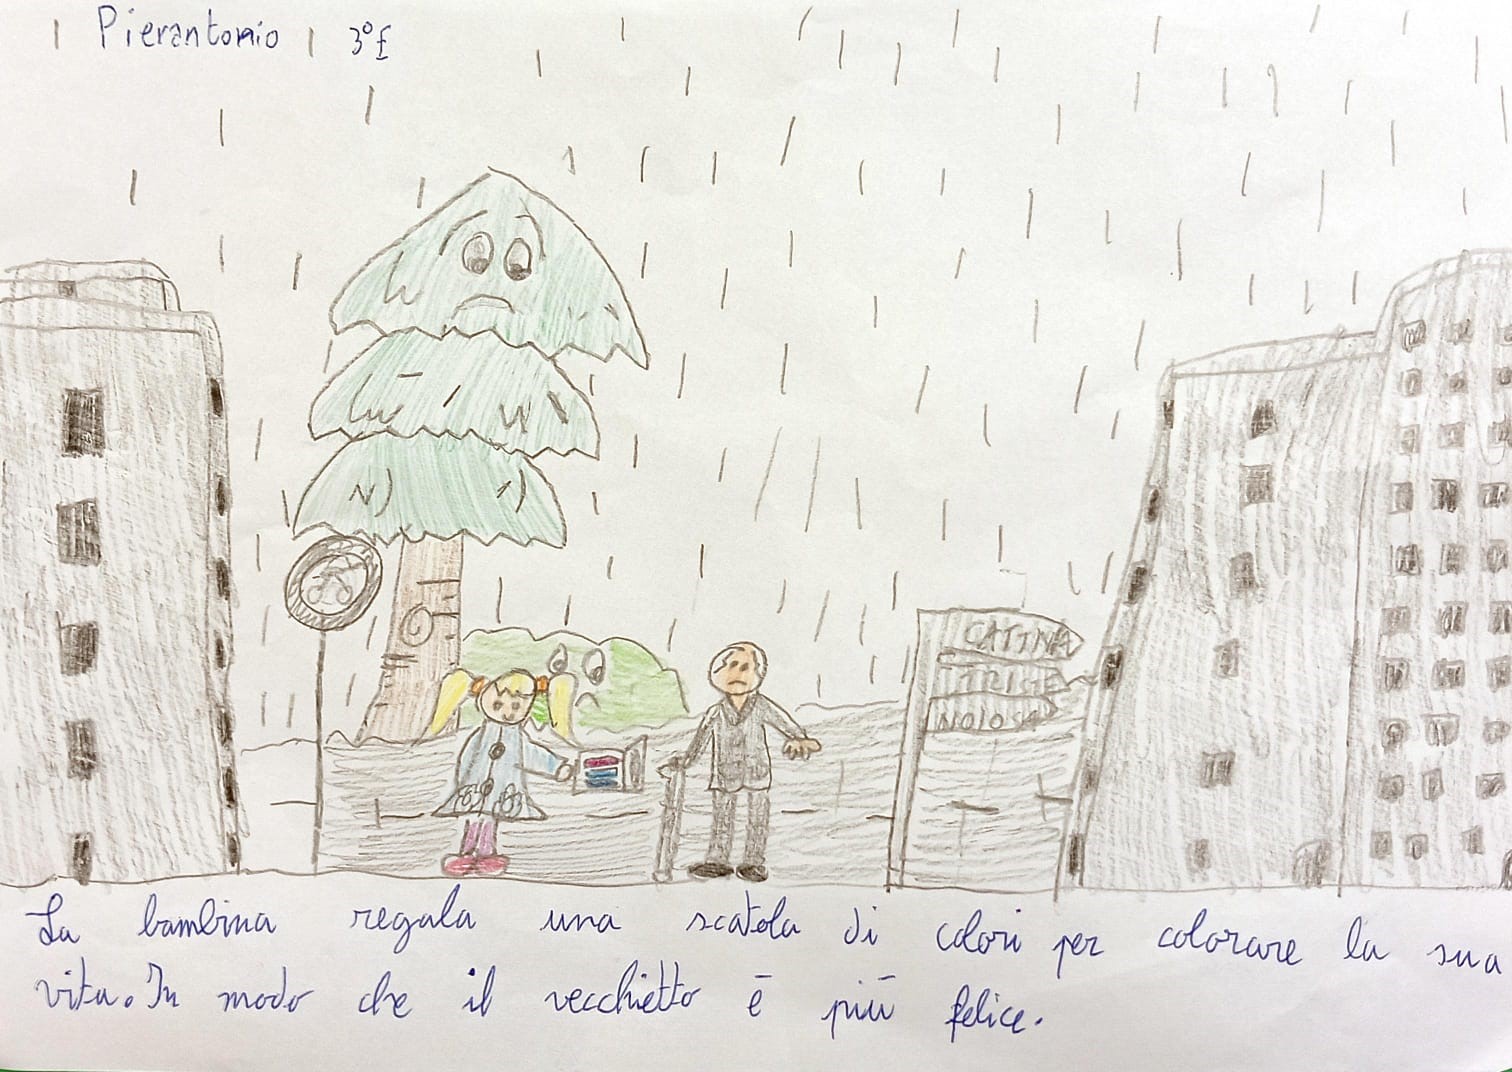 Pierantonio 3°f
CATTIVA
TRISTE
NOIOSA
La bambina regala una scatola di colori per colorare la sua
vita. In modo che il vecchietto ē più felice.